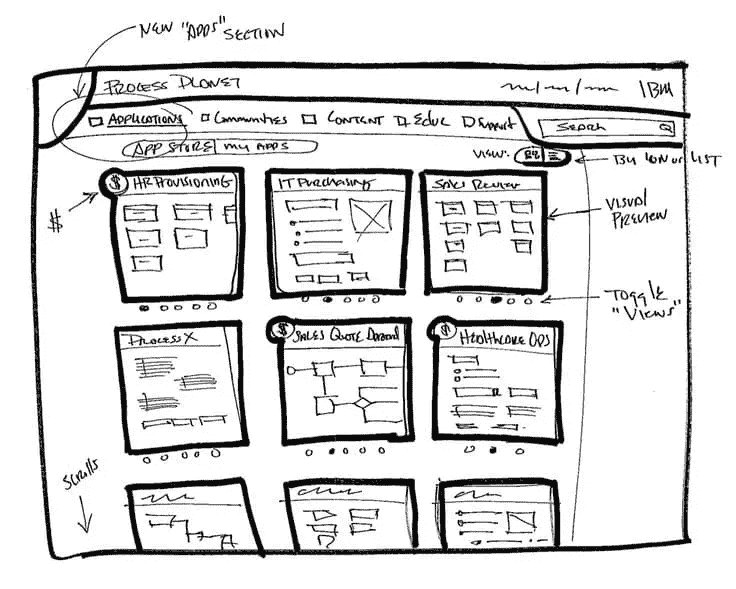 NEW "APPS" SECTION
PROCESS PLANET
IBM
APPLICATIONS Communities CONTENT EDUC Support
SEARCH
APP STORE MY APPS
VIEW:
BY ICON OR LIST
$
$ HR PROVISIONING
IT PURCHASING
SALES REVIEW
VISUAL PREVIEW
TOGGLE "VIEWS"
PROCESS X
$ SALES QUOTE
$ HEALTHCARE OPS
SCROLLS